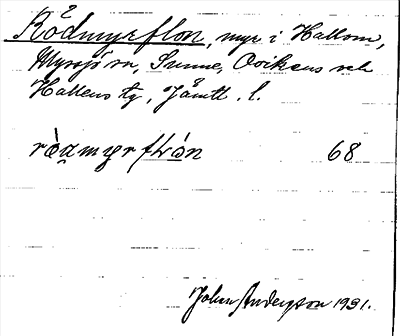 Rödmyrflon, myr i Hallom,
Myssjö sn, Sunne, Ovikens och
Hallens tg, Jämtl. l.
68
John Anderson 1931.